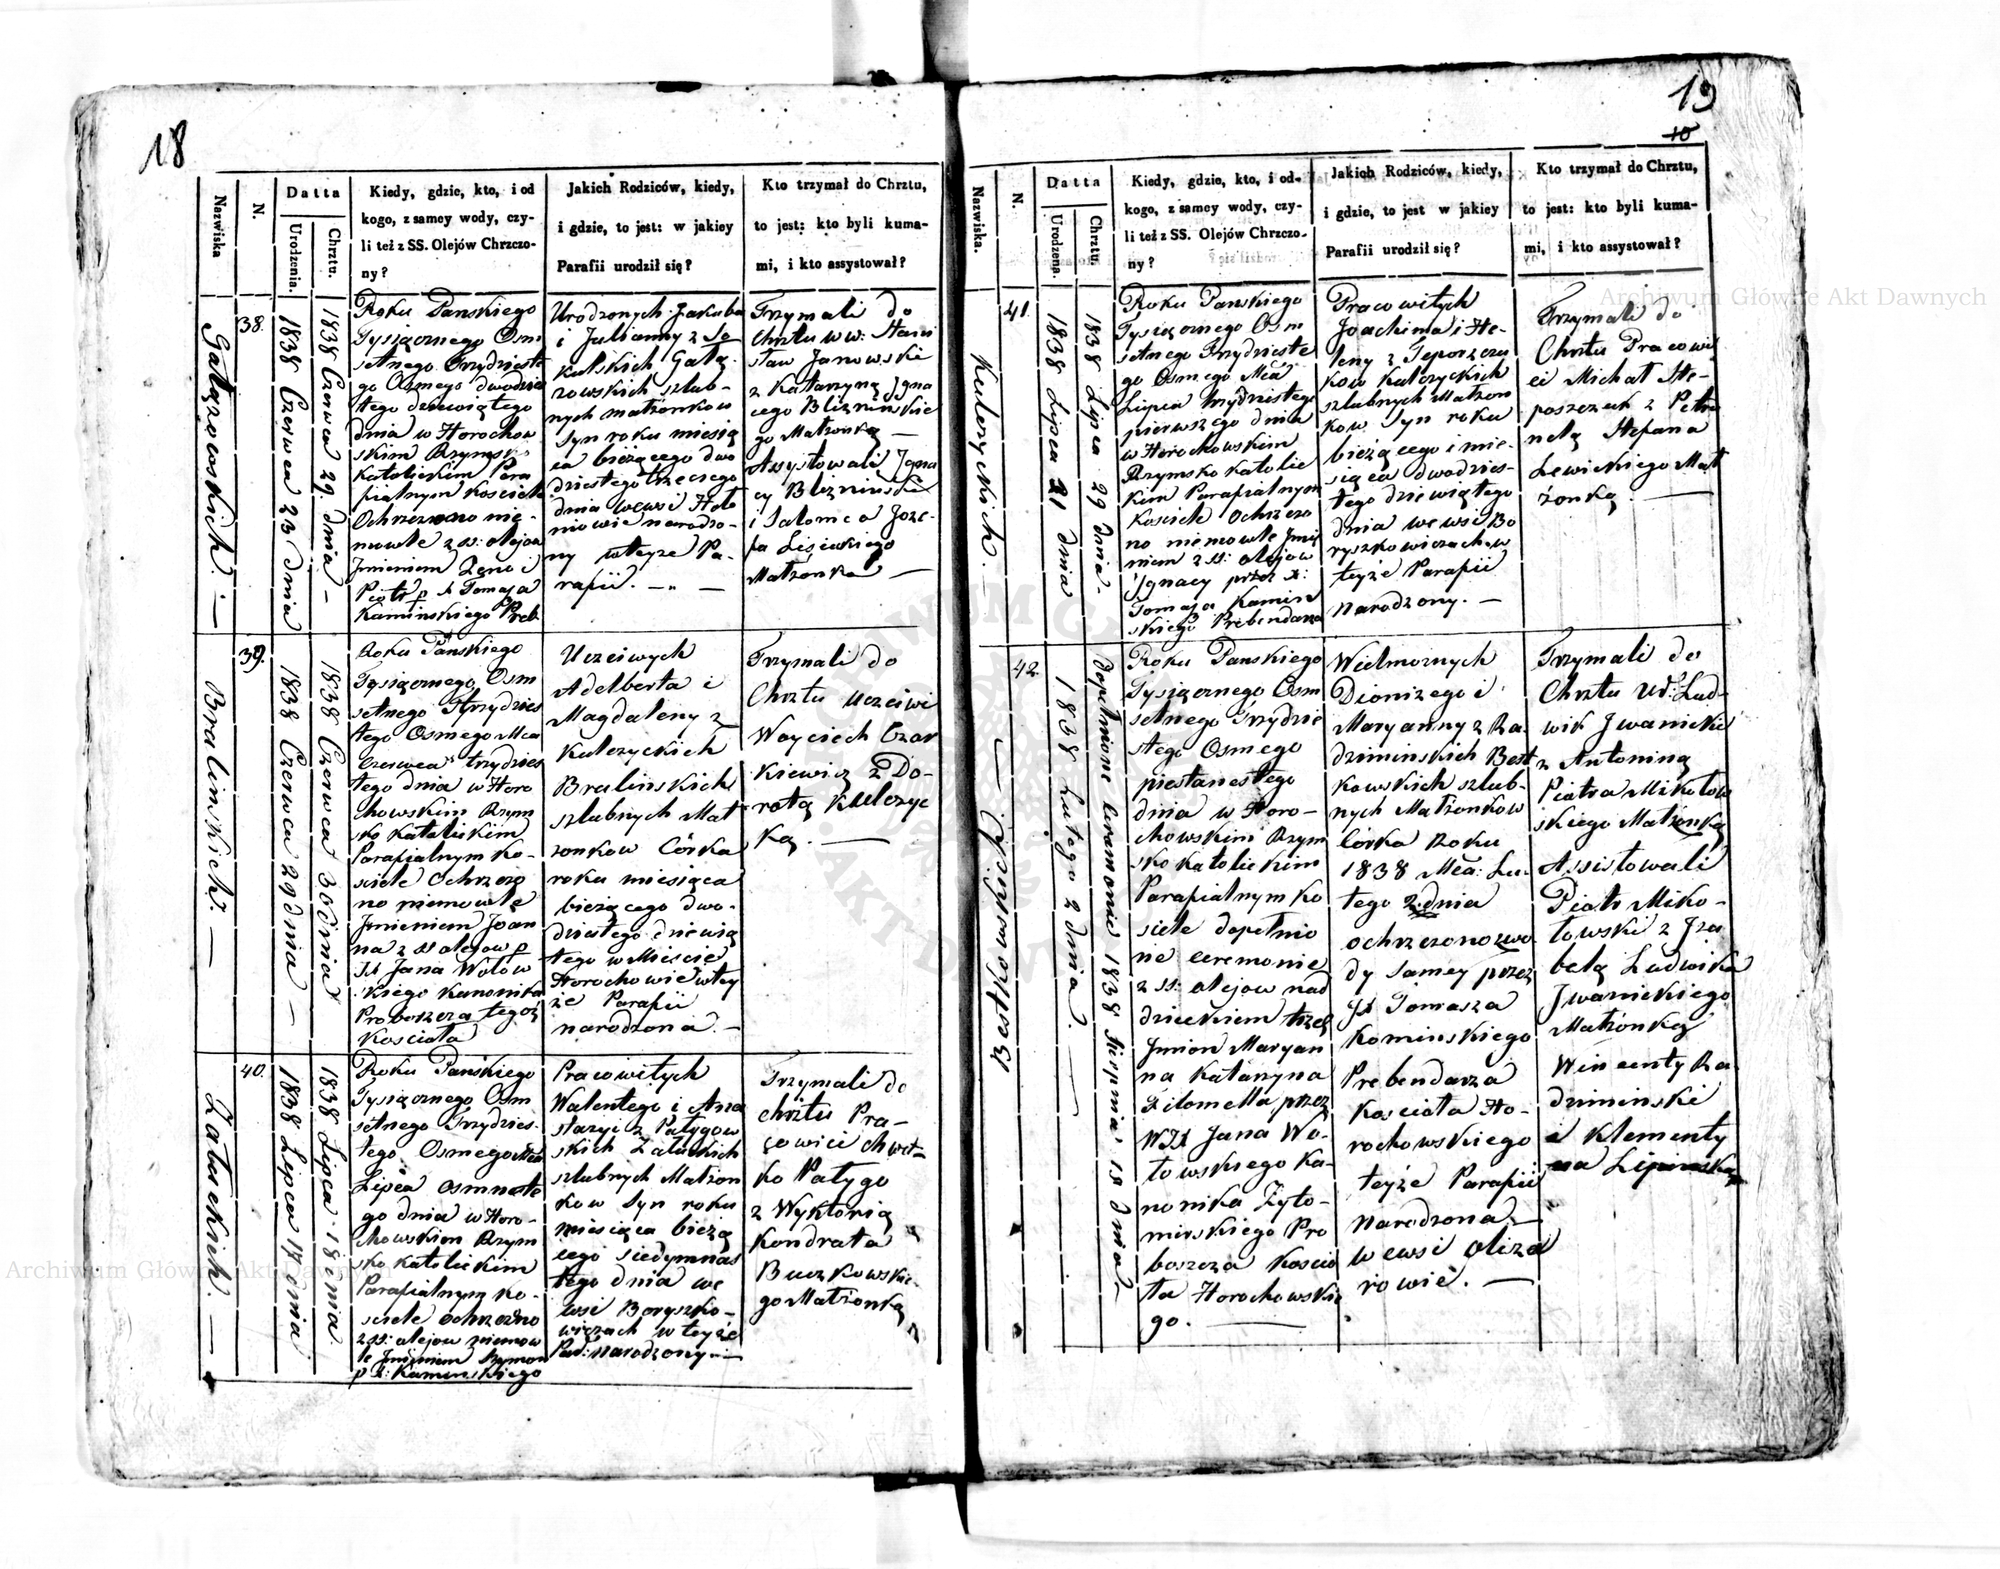 18
Nazwiska
N.
Datta
Urodzenia.
Chrztu.
Kiedy, gdzie, kto, i od
kogo, z samey wody, czy-
li też z SS. Olejów Chrzczo-
ny?
Jakich Rodziców, kiedy,
i gdzie, to jest: w jakiey
Parafii urodził się?
Kto trzymał do Chrztu,
to jest: kto byli kuma-
mi, i kto assystował?
Gałęzowskich. —
38.
1838 Czerwca 23 dnia
1838 Czerwca 29. dnia —
Roku Panskiego
Tysiącznego Osm
setnego Trzydzieste
go Osmego dwudzies
tego dziewiątego
dnia w Horochow
skim Rzymsko
Katolickim Para
fialnym Kosciele
Ochrzczono nie-
mowle z ss: olejow
Imieniem Zeno i
Piotr p X Tomasza
Kaminskiego Preb.
Urodzonych Jakuba
i Julianny z So
kulskich Gałę-
zowskich szlub-
nych małżonkow
Syn roku miesią
ca bieżącego dwu
dziestego trzeciego
dnia we wsi Hołо
niowie narodzo-
ny w teyże Pa-
rafii. — „ —
Trzymali do
Chrztu W W: Stani
sław Janowski
z Katarzyną Igna
cego Blizninskie
go Małżonką —
Assystowali Igna
cy Blizninski
i Salomea Joze-
fa Lisieckiego
Małżonka —
Bralinskich. —
39.
1838 Czerwca 29 dnia —
1838 Czerwca 30 dnia
Roku Panskiego
Tysiącznego Osm
setnego Trzydzies
tego Osmego Mca
Czerwca trzydzies
tego dnia w Horo
chowskim Rzym
sko Katolickim
Parafialnym Ko-
sciele Ochrzczo
no niemowlę
Imieniem Joan
na z ss olejow p
JX Jana Wołow
skiego Kanonika
Proboszcza tegoż
Kosciola
Uczciwych
Adelberta i
Magdaleny z
Kulczyckich
Bralinskich
szlubnych Mał
zonkow Córka
roku miesiąca
bieżącego dwu-
dziestego dziewią
tego w Miescie
Horochowie w tey
że Parafii
narodzona. —
Trzymali do
Chrztu Uczciwi
Woyciech Czar
kiewicz z Do-
rotą Kulczyc
ką. —
Załuckich. —
40.
1838 Lipca 17 dnia
1838 Lipca 18 dnia.
Roku Panskiego
Tysiącznego Osm
setnego Trzydzies-
tego Osmego Mca
Lipca osmnaste
go dnia w Horo-
chowskim Rzym
sko Katolickim
Parafialnym Ko-
sciele ochrzczono
z ss: olejow niemow
le Imieniem Szymon
p X: Kaminskiego
Pracowitych
Walentego i Ana
stazyi z Pałygow
skich Załuckich
szlubnych Małżon
kow Syn roku
miesiąca bieżą
cego siedymnas
tego dnia we
wsi Boryszko-
wiczach w teyże
Par: narodzony. —
Trzymali do
chrztu Pra-
cowici Chwet-
ko Pałygo
z Wyktorią
Kondrata
Buczkowskie-
go Małżonką
19
10
Nazwiska.
N.
Datta
Urodzena.
Chrztu.
Kiedy, gdzie, kto, i od-
kogo, z samey wody, czy-
li też z SS. Olejów Chrzczo-
ny?
Jakich Rodziców, kiedy,
i gdzie, to jest w jakiey
Parafii urodził się?
Kto trzymał do Chrztu,
to jest: kto byli kuma-
mi, i kto assystował?
Kulczyckich. —
41.
1838 Lipca 21 dnia
1838 Lipca 29 dnia.
Roku Panskiego
Tysiącznego Osm
setnego Trzydzieste
go Osmego Mca
Lipca trzydziestego
pierwszego dnia
w Horochowskim
Rzymsko Katolic
kim Parafialnym
Kosciele Ochrzczo
no niemowle Imie
niem z ss: olejow
Ignacy przez X:
Tomasza Kamin
skiego Prebendarza
Pracowitych
Joachima i He-
leny z Teporszczu
kow Kulczyckich
szlubnych Małżon
kow Syn roku
bieżącego i mie-
siąca dwudzies-
tego dziewiątego
dnia we wsi Bo
ryszkowiczach w
teyże Parafii
narodzony. —
Trzymali do
Chrztu Pracowi
ci Michał Ste-
poszczuk z Petro
nelą Stefana
Lewickiego Mał
żonką —
Bestkowskich. —
42.
1838 Lutego 2 dnia. —
Dopełnione Ceremonie 1838 Sierpnia 15 dnia. —
Roku Panskiego
Tysiącznego Osm
setnego Trzydzie
stego Osmego
piętanestego
dnia w Horo-
chowskim Rzym
sko Katolickim
Parafialnym Ko
sciele dopełnio
ne ceremonie
z ss: olejow nad
dzieckiem trzech
Imion Maryan
na Katarzyna
Filomella przez
WJX Jana Wo-
łowskiego Ka-
nonika Żyto-
mirskiego Pro
boszcza Koscio
ła Horochowskie
go. —
Wielmożnych
Dionizego i
Maryanny z Ra
dziminskich Best
kowskich szlub-
nych Małżonkow
Córka Roku
1838 Mca: Lu-
tego 2 dnia
ochrzczono z wo
dy samey przez
JX Tomasza
Kominskiego
Prebendarza
Kosciola Ho-
rochowskiego
teyże Parafii
Narodzona —
w wsi Oliza
rowie. —
Trzymali do
Chrztu W: Lud-
wik Iwanicki
z Antoniną
Piotra Mikołow
skiego Małżonką
Assistowali
Piotr Miko-
łowski z Iza
belą Ludwika
Iwanickiego
Małżonką
Wincenty Ra
dziminski
i Klementy
na Lipinska
Archiwum Główne Akt Dawnych
Archiwum Główne Akt Dawnych